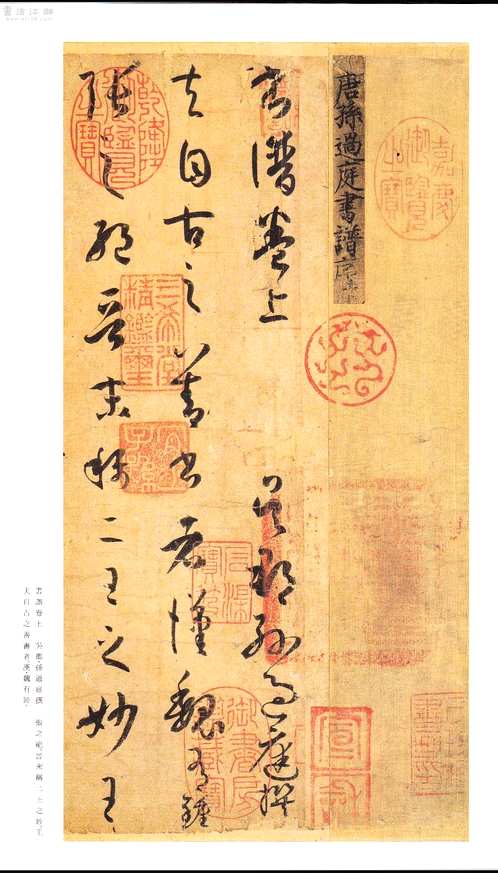 唐孫過庭書譜序
書譜卷上 吳郡孫過庭撰
夫自古之善書者漢魏有鍾
張之絕晉末稱二王之妙王
嘉慶御覽之寶
乾隆御覽之寶
三希堂精鑑璽
宜子孫
石渠寶笈
御書房鑑藏寶
書譜卷上 吳郡孫過庭撰
夫自古之善書者漢魏有鍾
張之絕晉末稱二王之妙王